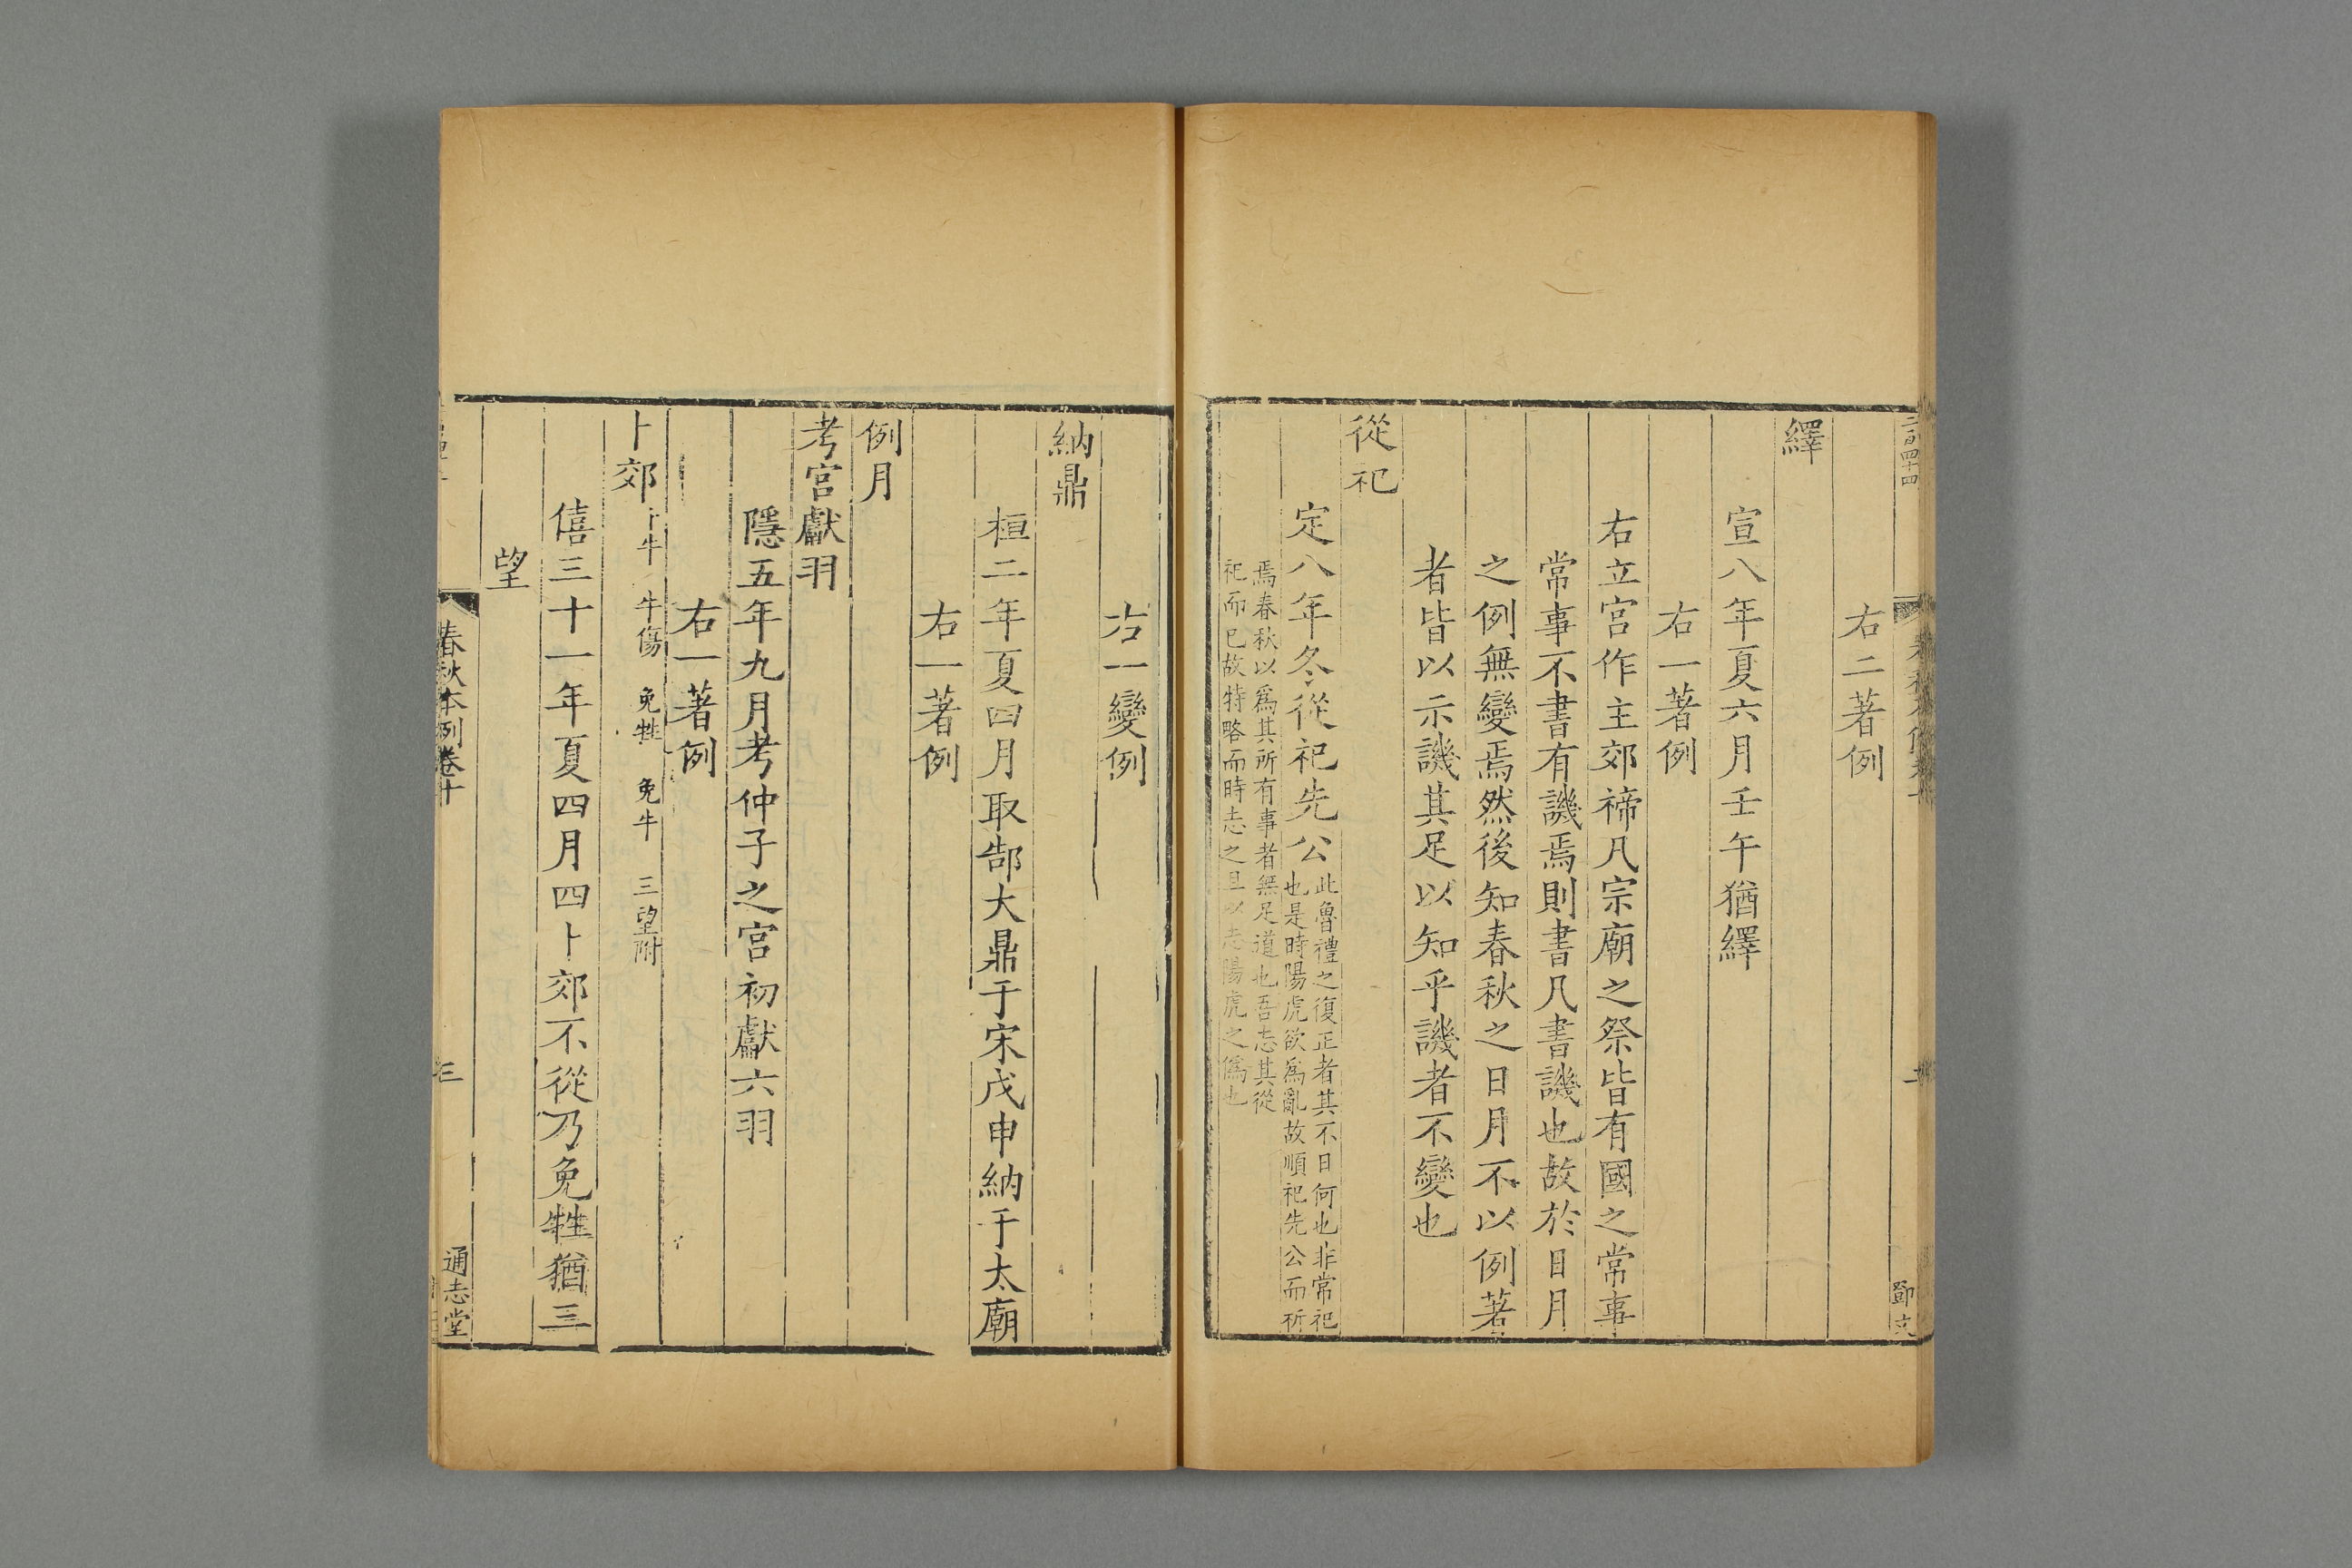 右二著例
繹
宣八年夏六月壬午猶繹
右一著例
右立宮作主郊禘凡宗廟之祭皆有國之常事
常事不書有譏焉則書凡書譏也故於日月
之例無變焉然後知春秋之日月不以例著
者皆以示譏其足以知乎譏者不變也
從祀
定八年冬從祀先公此魯禮之復正者其不日何也非常祀
也是時陽虎欲為亂故順祀先公而祈
焉春秋以為其所有事者無足道也吾志其從
祀而已故特略而時志之且以志陽虎之僞也
右一變例
納鼎
桓二年夏四月取郜大鼎于宋戊申納于太廟
右一著例
例月
考宮獻羽
隱五年九月考仲子之宮初獻六羽
右一著例
卜郊 卜牛 牛傷 免牲 免牛 三望附
僖三十一年夏四月四卜郊不從乃免牲猶三
望
春秋本例卷十 三 通志堂